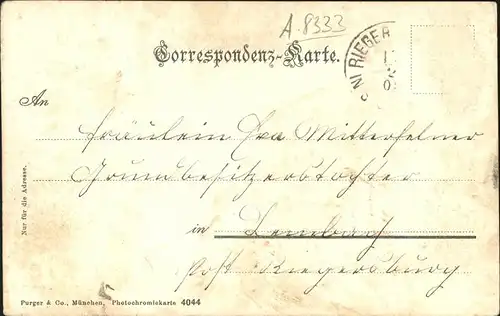 A.8333
Correspondenz-Karte.
RIEGER
An
Fräulein Mitterfelner
Grundbesitzerstochter
in Lembach
Post Riegersburg
Nur für die Adresse.
Purger & Co., München, Photochromiekarte 4044